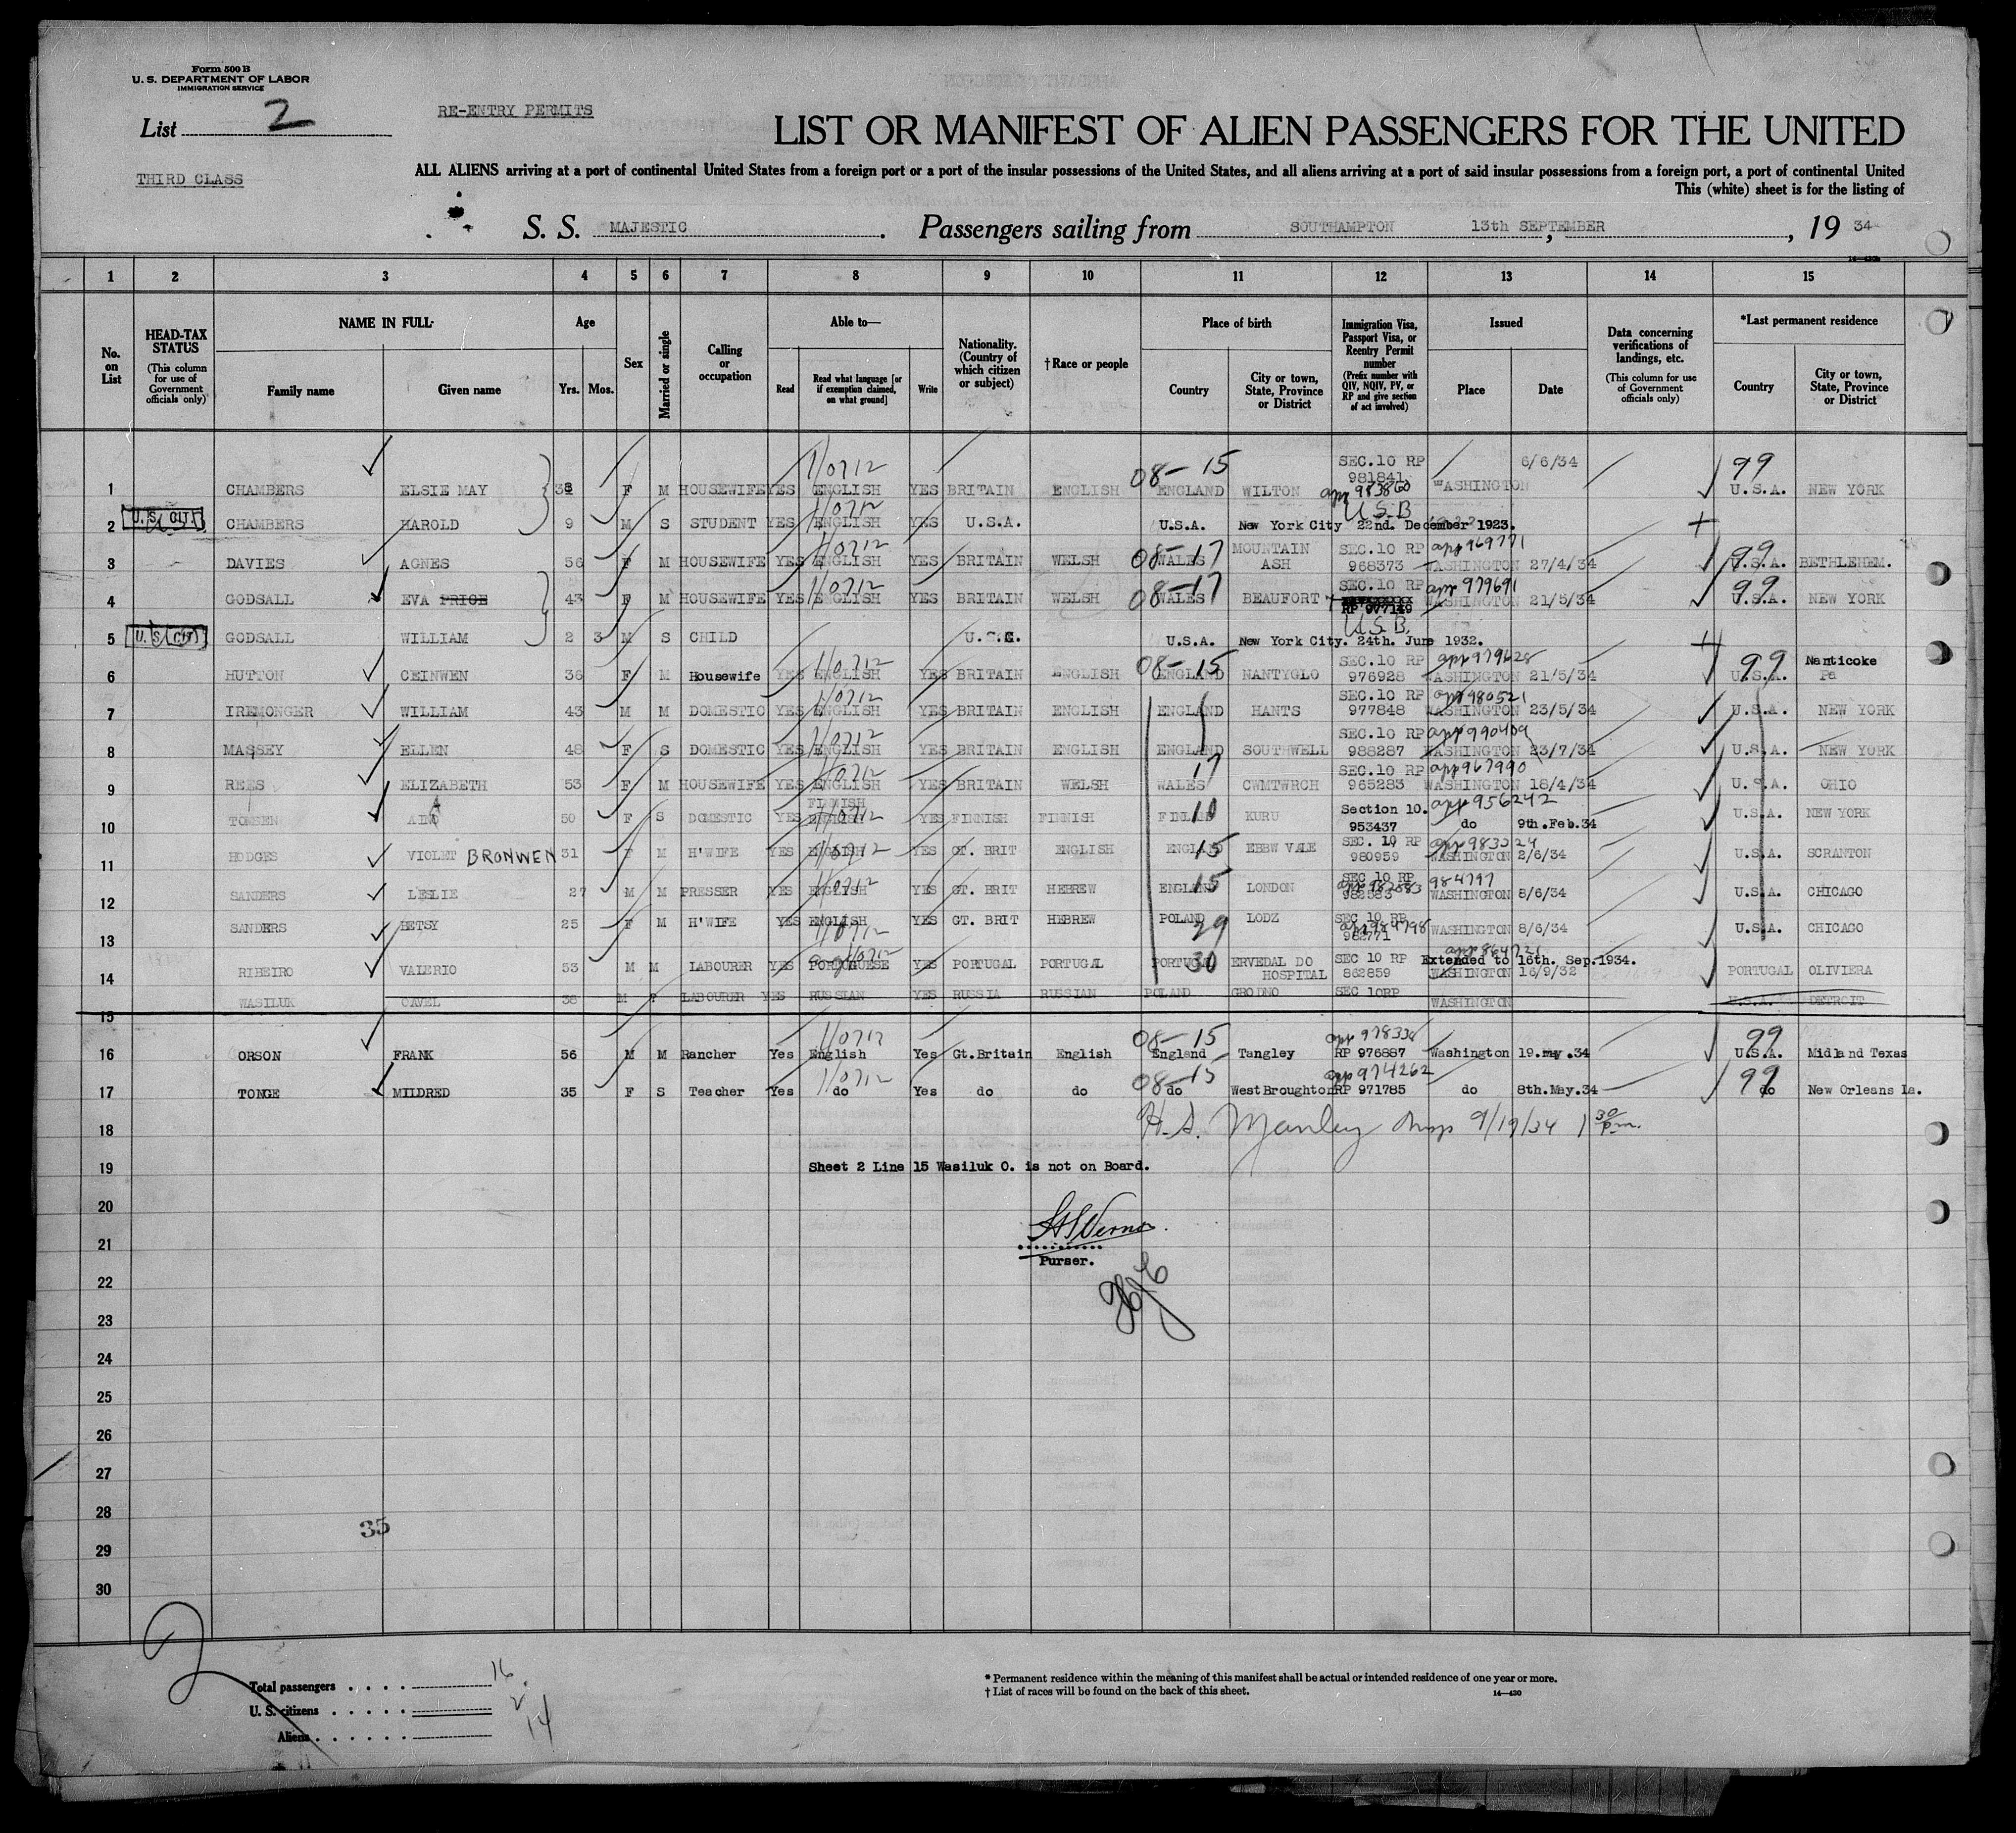 Form 500 B
U. S. DEPARTMENT OF LABOR
IMMIGRATION SERVICE
List 2
RE-ENTRY PERMITS
LIST OR MANIFEST OF ALIEN PASSENGERS FOR THE UNITED
THIRD CLASS
ALL ALIENS arriving at a port of continental United States from a foreign port or a port of the insular possessions of the United States, and all aliens arriving at a port of said insular possessions from a foreign port, a port of continental United
This (white) sheet is for the listing of
S. S. MAJESTIC. Passengers sailing from SOUTHAMPTON 13th SEPTEMBER, 19 34
1 2 3 4 5 6 7 8 9 10 11 12 13 14 15
No. on List
HEAD-TAX STATUS (This column for use of Government officials only)
NAME IN FULL Family name Given name
Age Yrs. Mos.
Sex
Married or single
Calling or occupation
Able to— Read Read what language [or if exemption claimed, on what ground] Write
Nationality. (Country of which citizen or subject)
† Race or people
Place of birth Country City or town, State, Province or District
Immigration Visa, Passport Visa, or Reentry Permit number (Prefix number with QIV, NQIV, PV, or RP and give section of act involved)
Issued Place Date
Data concerning verifications of landings, etc. (This column for use of Government officials only)
*Last permanent residence Country City or town, State, Province or District
1 CHAMBERS ELSIE MAY 38 F M HOUSEWIFE YES ENGLISH YES BRITAIN ENGLISH 08-15 ENGLAND WILTON SEC.10 RP 981841 app 983860 WASHINGTON 6/6/34 99 U.S.A. NEW YORK
2 U.S. CIT. CHAMBERS HAROLD 9 M S STUDENT YES ENGLISH YES U.S.A. U.S.A. New York City 22nd. December 1923. U.S.B
3 DAVIES AGNES 56 F M HOUSEWIFE YES ENGLISH YES BRITAIN WELSH 08-17 WALES MOUNTAIN ASH SEC.10 RP 968373 app 969771 WASHINGTON 27/4/34 99 U.S.A. BETHLEHEM.
4 GODSALL EVA PRICE 43 F M HOUSEWIFE YES ENGLISH YES BRITAIN WELSH 08-17 WALES BEAUFORT SEC.10 RP RP 977149 app 979691 WASHINGTON 21/5/34 99 U.S.A. NEW YORK
5 U.S. CIT GODSALL WILLIAM 2 3 M S CHILD U.S.A. New York City. 24th. June 1932. U.S.B.
6 HUTTON CEINWEN 36 F M Housewife YES ENGLISH YES BRITAIN ENGLISH 08-15 ENGLAND NANTYGLO SEC.10 RP 976928 app 979628 WASHINGTON 21/5/34 99 U.S.A. Nanticoke Pa
7 IREMONGER WILLIAM 43 M M DOMESTIC YES ENGLISH YES BRITAIN ENGLISH ENGLAND HANTS SEC.10 RP 977848 app 980521 WASHINGTON 23/5/34 U.S.A. NEW YORK
8 MASSEY ELLEN 48 F S DOMESTIC YES ENGLISH YES BRITAIN ENGLISH ENGLAND SOUTHWELL SEC.10 RP 988287 app 990409 WASHINGTON 23/7/34 U.S.A. NEW YORK
9 REES ELIZABETH 53 F M HOUSEWIFE YES ENGLISH YES BRITAIN WELSH 17 WALES CWMTWRCH SEC.10 RP 965283 app 967990 WASHINGTON 18/4/34 U.S.A. OHIO
10 50 F S DOMESTIC YES FINNISH YES FINNISH FINNISH 10 FINLAND KURU Section 10. 953437 app 956242 do 9th.Feb.34 U.S.A. NEW YORK
11 HODGES VIOLET BRONWEN 31 F M H'WIFE YES ENGLISH YES GT. BRIT ENGLISH 15 ENGLAND EBBW VALE SEC. 10 RP 980959 WASHINGTON 2/6/34 U.S.A. SCRANTON
12 SANDERS LESLIE 27 M M PRESSER YES ENGLISH YES GT. BRIT HEBREW 15 ENGLAND LONDON SEC 10 RP 984797 WASHINGTON 8/6/34 U.S.A. CHICAGO
13 SANDERS BETSY 25 F M H'WIFE YES ENGLISH YES GT. BRIT HEBREW 29 POLAND LODZ SEC 10 RP app 984798 982771 WASHINGTON 8/6/34 U.S.A. CHICAGO
14 RIBEIRO VALERIO 53 M M LABOURER YES PORTUGUESE YES PORTUGAL PORTUGAL 30 PORTUGAL ERVEDAL DO HOSPITAL SEC 10 RP 862859 app 864721 Extended to 16th. Sep.1934. WASHINGTON 16/9/32 PORTUGAL OLIVIERA
15 WASILUK 38 M LABOURER YES RUSSIAN YES RUSSIA RUSSIAN POLAND GRODNO SEC 10RP WASHINGTON U.S.A. DETROIT
16 ORSON FRANK 56 M M Rancher Yes English Yes Gt.Britain English 08-15 England Tangley RP 976887 Washington 19.may.34 99 U.S.A. Midland Texas
17 TONGE MILDRED 35 F S Teacher Yes do Yes do do 08-15 do West Broughton RP 971785 app 974262 do 8th.May.34 99 do New Orleans La.
18 H. S. Manley Insp 9/19/34 1 30 p.m.
19 Sheet 2 Line 15 Wasiluk O. is not on Board.
20
21
Purser.
22
23
24
25
26
27
28
35
29
30
Total passengers 16
U. S. citizens 2
Aliens 14
* Permanent residence within the meaning of this manifest shall be actual or intended residence of one year or more.
† List of races will be found on the back of this sheet.
14—430